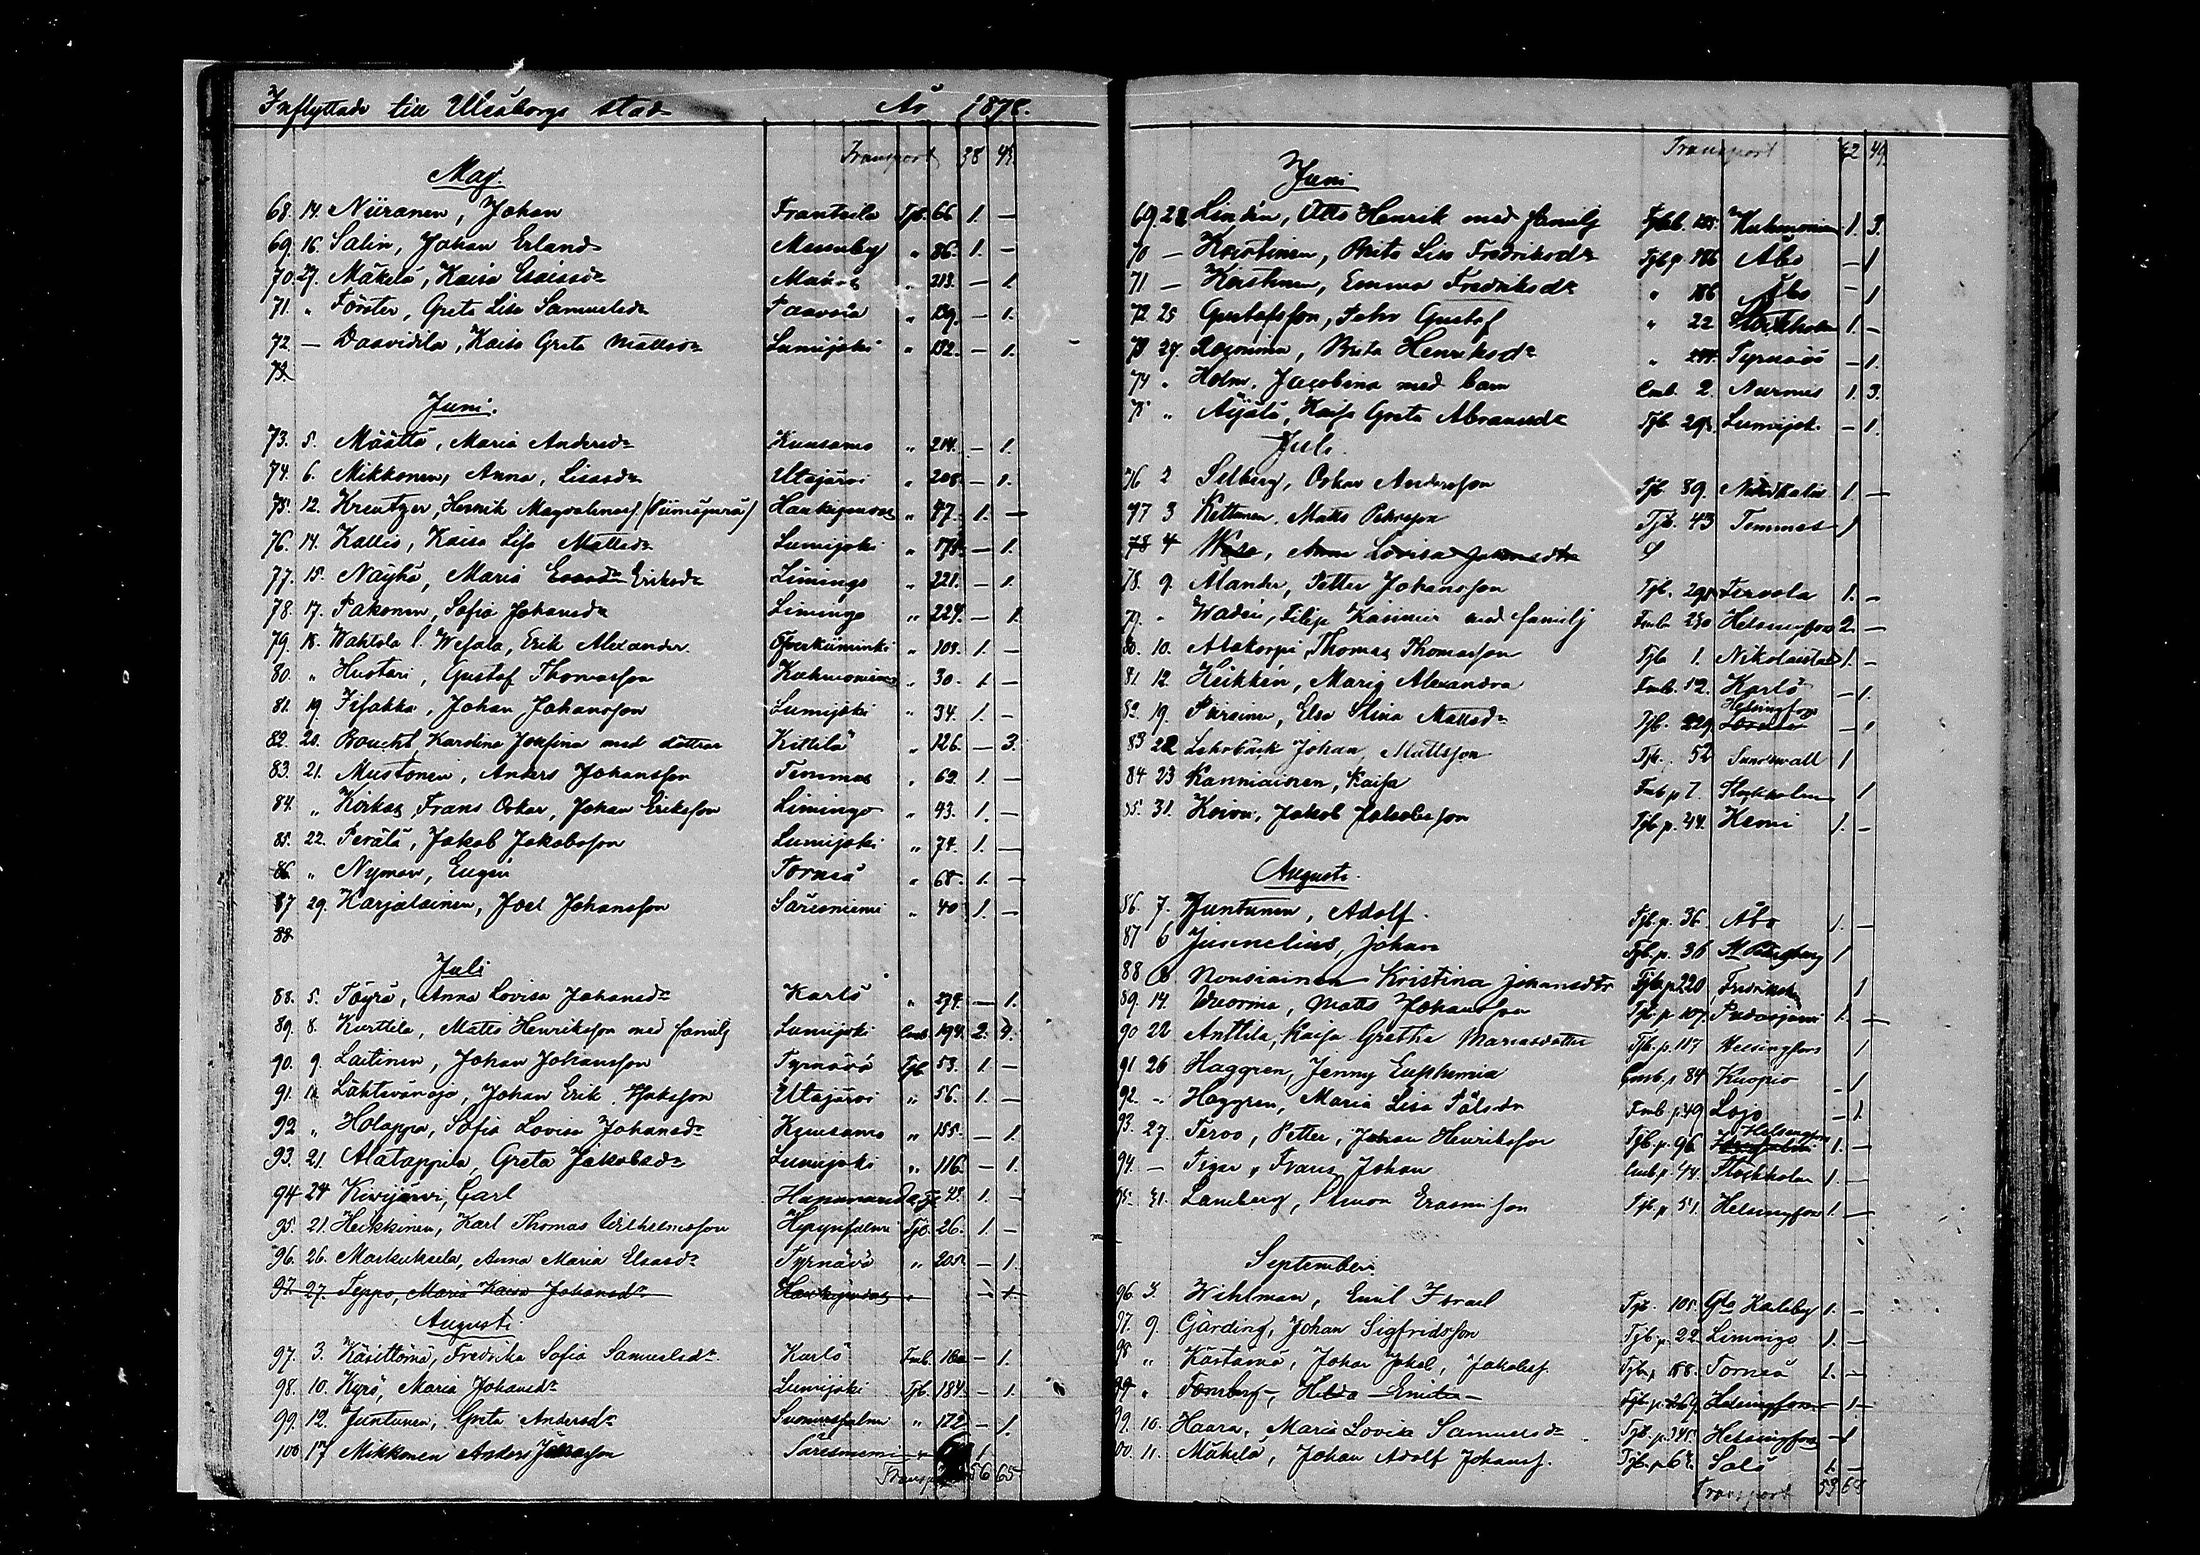 Inflyttade till Uleåborgs stad År 1878.
Transport 38 43.
Maj.
68. 14. Niiranen, Johan Frantsila Tjb. 66 1. —
69. 16. Salin, Johan Erland " 86. 1. —
70. 27. Mäkelä, Kaisa Esaiasdr " 213. — 1
71. " Förster, Greta Lisa Samuelsdr Paavola " 139. — 1.
72. — Daavidila, Kaisa Greta Mattsdr Lumijoki " 132. — 1.
73.
Juni.
73. 5. Määttä, Maria Andersdr Kuusamo " 214. — 1.
74. 6. Mikkonen, Anna, Lisasdr Utajärvi " 208. — 1.
75. 12. Kreutzer, Henrik Magdalenasf. Haukipudas " 87. 1. —
76. 14. Kallio, Kaisa Lisa Mattsdr Lumijoki " — 1.
77. 15. Näyhä, Maria Eriksdr Limingo " 221. — 1.
78. 17. Pakonen, Sofia Johansdr Limingo " 224. — 1.
79. 18. Wahtola l. Wesala, Erik Alexander Öfverkiiminki " 101. 1. —
80. " Hustari, Gustaf Thomasson Kuhmoniemi " 30. 1 —
81. 19. Iisakka, Johan Johansson Lumijoki " 34. 1. —
82. 20. Boucht, Karolina Josefina med döttrar Kittilä " 126. — 3.
83. 21. Mustonen, Anders Johansson Temmes " 62. 1. —
84. " Korkas, Frans Oskar, Johan Eriksson Limingo " 43. 1. —
85. 22. Perälä, Jakob Jakobsson Lumijoki " 74. 1. —
86. " Nyman, Eugén Torneå " 68. 1. —
87 29. Karjalainen, Joel Johansson Säresniemi " 40 1. —
88
Juli
88. 5. Töyrä, Anna Lovisa Johansdr Karlö " 274. — 1.
89. 8. Kurttila, Matts Henriksson med familj Lumijoki Cmb. 194. 2. 4.
90. 9. Laitinen, Johan Johansson Tyrnävä Tjb. 53. 1. —
91. 12. Lähtevänoja, Johan Erik Utajärvi " 56. 1. —
92 " Holappa, Sofia Lovisa Johansdr Kuusamo " 155. — 1.
93. 21. Alatappila, Greta Jakobsdr Lumijoki " 116. — 1.
94 24 Kivijärvi, Carl Haparanda 1. —
95. 21. Heikkinen, Karl Thomas Wilhelmsson Hyrynsalmi Tjb. 26. 1. —
96. 26. Markuksela, Anna Maria Elsasdr Tyrnävä " 205. — 1.
97. 27. Teppo, Maria Kaisa Johansdr Haukipudas " — 1
Augusti.
97. 3. Fredrika Sofia Samuelsdr. Karlö Fmb. — 1.
98. 10. Kyrö, Maria Johansdr Lumijoki Tjb. 184. — 1.
99. 12. Juntunen, Greta Andersdr Suomussalmi " 172 — 1.
100 17 Mikkonen Anders Säresniemi " 1.
Transport 56 65
Transport 42 49.
Juni
69. 22 Lindén, Otto Henrik med familj Kuhmoniemi 1. 3.
70 — Korstinen, Brita Lisa Fredriksdr Tjb p. 186 Åbo — 1
71 — Korstinen, Emma Fredriksdr " 186 Åbo — 1
72 25 Gustafsson, John Gustaf " 22 Stockholm 1. —
73 27. Brita Henriksdr " Tyrnävä — 1.
74 " Holm, Jacobina med barn Cmb. 2. Nurmes 1. 3.
75 " Äijälä, Kaisa Greta Abramsdr Tjb 292. Lumijok. — 1.
Juli.
76 2 Selberg, Oskar Andersson Tjb 89. 1. —
77 3 Kettunen, Matts Petersson Tjb. 43 Temmes 1
78 4 Anna Lovisa Johansdtr
78. 9. Alander, Petter Johansson Tjb. Tervola 1. —
79. " Filip Kasimir med familj Fmb. 230 Helsingfors 2. —
80. 10. Alakorpi, Thomas Thomasson Tjb 1. Nikolaistad 1. —
81 12. Heikkén, Maria Alexandra Fmb. 52. Karlö — 1.
82. 19. Piirainen, Elsa Stina Mattsdr Tjb. 229. Helsingfors — 1
83 22 Lahnbäck Johan, Mattsson Tjb. 52 Sundsvall 1
84 23 Kanniainen, Kaisa Fmb p 7. Stockholm 1
85. 31. Koivu, Jakob Jakobsson Tjb p. 44. Kemi 1. —
Augusti.
86. 7. Juntunen, Adolf. Tjb. p. 36. Åbo 1. —
87 6 Junnelius, Johan Tjb. p. 36 St Petersburg 1
88 8 Nousiainen Kristina Johansdtr Tjb p 220 Fredrikshn 1
89. 14. Vuorma, Matts Johansson Tjb p 107. Pudasjärvi 1. —
90 22 Anttila, Kaisa Gretha Mariasdotter Tjb. p. 117 Helsingfors 1
91 26 Haggren, Jenny Euphemia Cmb. p 84 Kuopio — 1
92. " Haggren, Maria Lisa Pålsdr Fmb. p. 49 Lojo — 1.
93. 27. Tervo, Petter, Johan Henriksson Tjb. p. 96 Helsingfors 1. —
94. — Tiger, Frans Johan Cmb. p. 44. Stockholm 1. —
95. 31. Lamberg, Simon Erasmisson Tjb. p. 51. Helsingfors 1. —
September.
96. 3. Wihlman, Emil Israel Tjb. 105. Gla Kaleby 1. —
97. 9. Gärding, Johan Sigfridsson Tjb. p. 22. Limingo 1. —
98 " Kästämä, Johan Jakob, Jakobsf. Tjb. p 158. Torneå 1. —
99 " Tornberg, Hilda Emilia Tjb. p. 269. Helsingfors — 1.
99. 10. Haara, Maria Lovisa Samuelsdr Tjb. p. Helsingfors — 1
100. 11. Mäkelä, Johan Adolf Johansf. Tjb. p. Salo 1. —
Transport 59 63